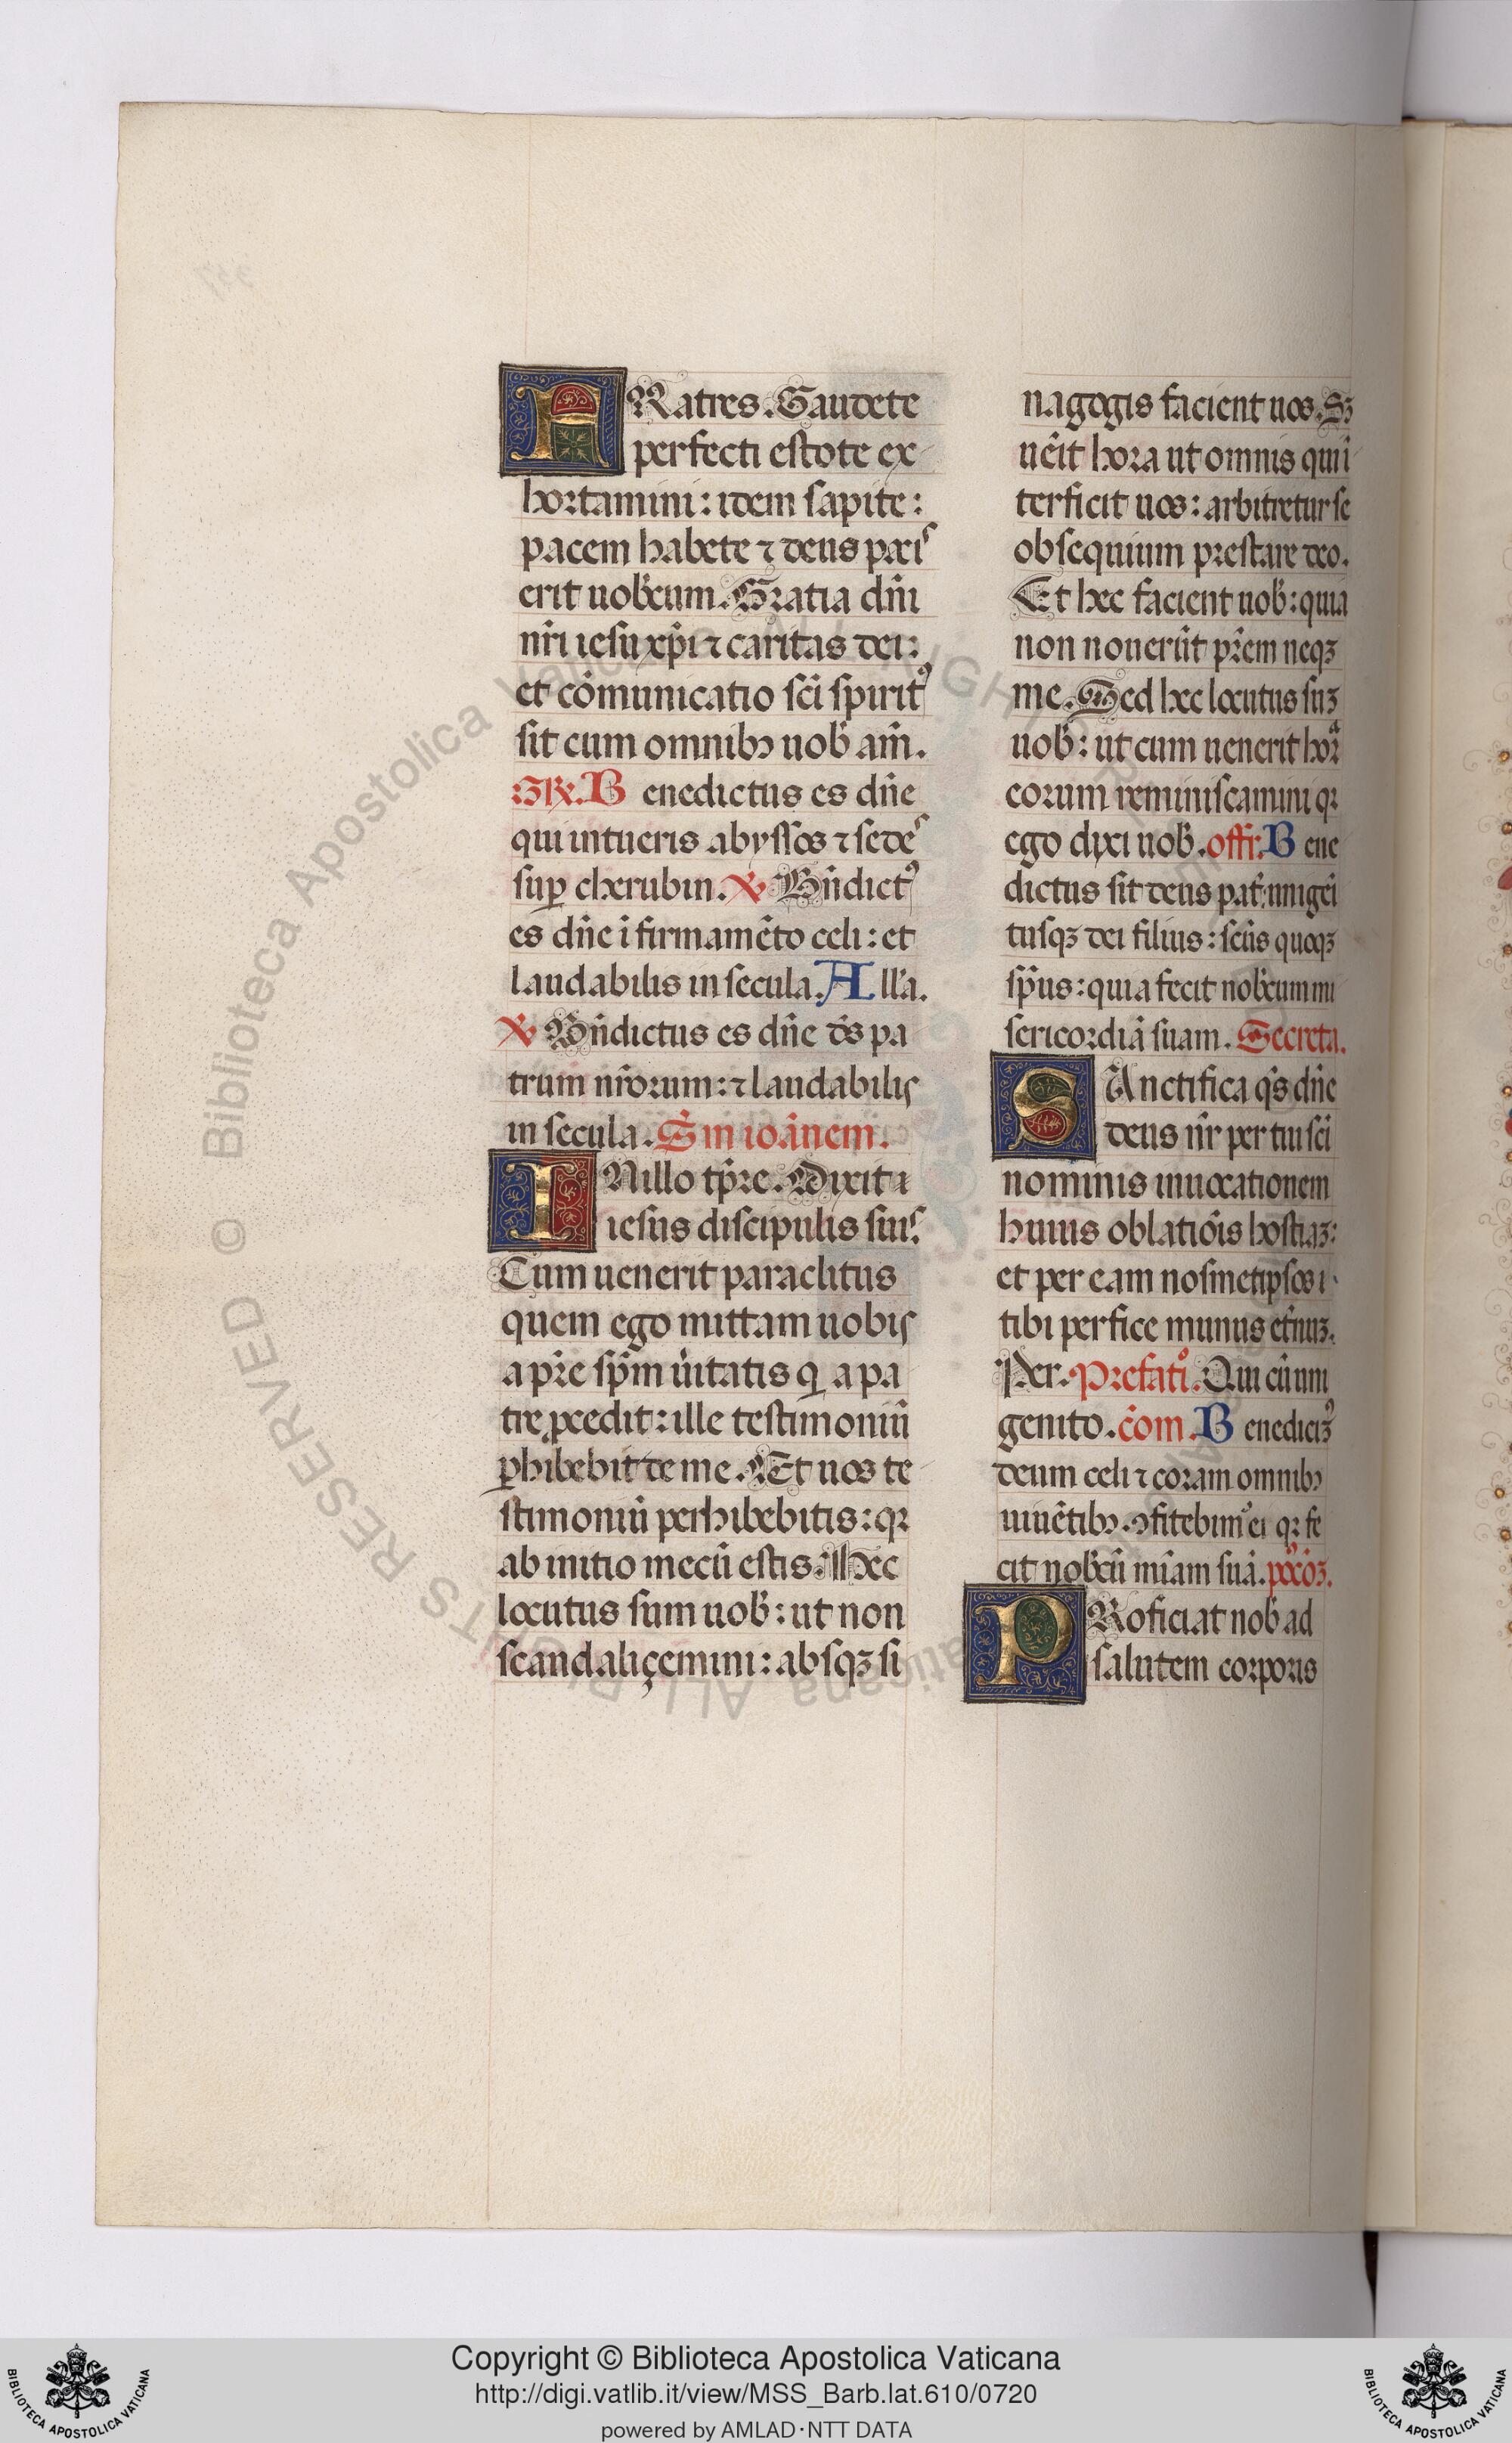 FRatres. Gaudete
perfecti estote ex
hortamini: idem sapite:
pacem habete ⁊ deus pacis
erit uob̄cum. Gratia dn̄i
nr̄i iesu xp̄i ⁊ caritas dei:
et cōmunicatio sc̄i spiritꝰ
sit cum omnibꝫ uob̄ am̄.
GR̄. Benedictus es dn̄e
qui intueris abyssos ⁊ sedes
suꝑ cherubin. ℣ Bn̄dictꝰ
es dn̄e ī firmamēto celi: et
laudabilis in secula. All'a.
℣ Bn̄dictus es dn̄e ds̄ pa
trum nr̄orum: ⁊ laudabilis
in secula. Sm̄ ioānem.
IN illo tp̄re. Dixit
iesus discipulis suis.
Cum uenerit paraclitus
quem ego mittam uobis
a pr̄e sp̄m ūitatis q̲ a pa
tre ꝓcedit: ille testimoniū
ꝑhibebit de me. Et uos te
stimoniū perhibebitis: qꝛ
ab initio mecū estis. Hec
locutus sum uob̄: ut non
scandaliçemini: absqꝫ si
nagogis facient uos. Sꝫ
uēit hora ut omnis qui ī
terficit uos: arbitretur se
obsequium prestare deo.
Et hec facient uob̄: quia
non nouerūt pr̄em neqꝫ
me. Sed hec locutus suꝫ
uob̄: ut cum uenerit hora
eorum reminiscamini qꝛ
ego dixi uob̄. offr̄. Bene
dictus sit deus pat̄: unigēi
tusqꝫ dei filius: sc̄us quoqꝫ
sp̄us: quia fecit nob̄cum mi
sericordiā suam. Secreta.
SAnctifica qs̄ dn̄e
deus nr̄ per tui sc̄i
nominis inuocationem
huius oblatiōis hostiaꝫ:
et per eam nosmetipsos
tibi perfice munus et̄nuꝫ.
Per. Prefatiō. Qui cū uni
genito. cōm. Benediciꝫꝰ
deum celi ⁊ coram omnibꝫ
uiuētibꝫ ꝯfitebimꝰ ei qꝛ fe
cit nob̄cū mīam suā. pꝰcōꝫ.
PRoficiat nob̄ ad
salutem corporis
Copyright © Biblioteca Apostolica Vaticana
http://digi.vatlib.it/view/MSS_Barb.lat.610/0720
powered by AMLAD·NTT DATA